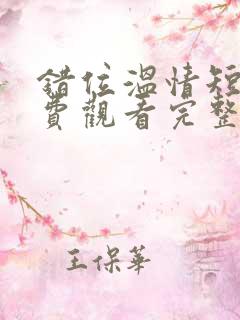 錯位溫情短
費觀看完整
王保華